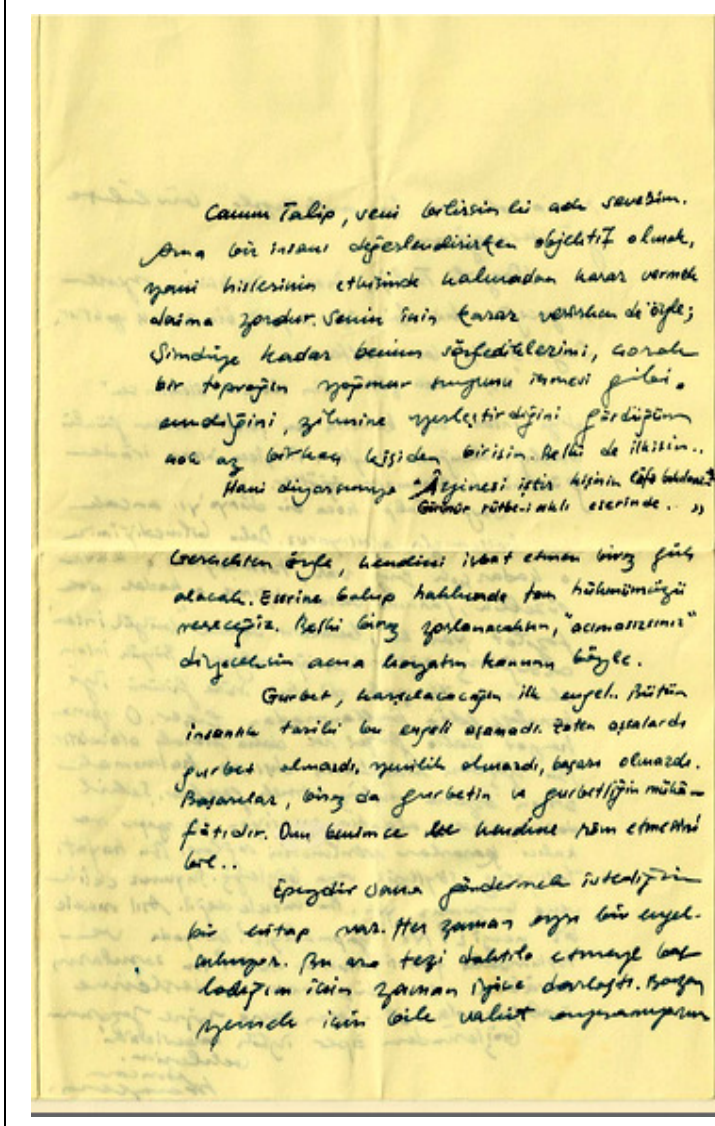 Canım Talip, seni bilirsin ki çok severim.
Ama bir insanı değerlendirirken objektif olmak,
yani hislerinin etkisinde kalmadan karar vermek
daima zordur. Senin için karar verirken de öyle;
Şimdiye kadar benim söylediklerimi, çorak
bir toprağın yağmur suyunu emmesi gibi.
emdiğini, zihnine yerleştirdiğini gördüğüm
çok az birkaç kişiden birisin. Belki de ilkisin..
Hani diyorsunuz "Âyinesi iştir kişinin lâfa bakılmaz
Görünür rütbe-i aklı eserinde. „
Gerçekten öyle, kendini isbat etmen biraz güç
olacak. Eserine bakıp hakkında tam hükmümüzü
vereceğiz. Belki biraz zorlanacaksın, "acımasızsınız"
diyeceksin ama hayatın kanunu böyle.
Gurbet, karşılaşacağın ilk engel. Bütün
insanlık tarihi bu engeli aşamadı. Zaten aşsalardı
gurbet olmazdı, yenilik olmazdı, başarı olmazdı.
Başarılar, biraz da gurbetin ve gurbetliğin mükâ-
fâtıdır. Onu benimce kendine râm etmesini
bil..
Epeydir sana göndermek istediğim
bir kitap var. Her zaman ayrı bir engel
çıkıyor. Bu ara tezi daktilo etmeye baş-
ladığım için zaman iyice darlaştı. Bazen
yemek için bile vakit ayıramıyorum